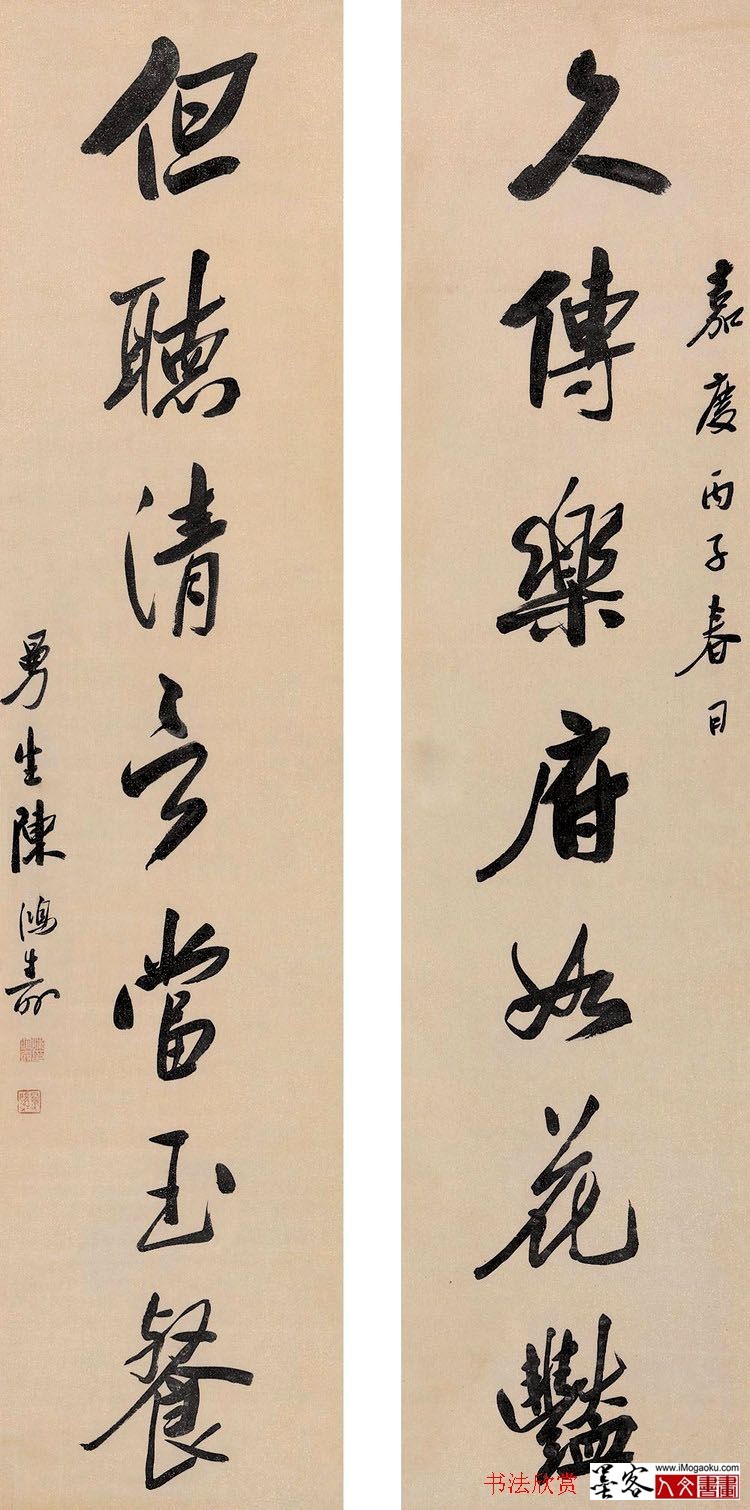 嘉慶丙子春日
久傳樂府如花豔
但聽清言當玉餐
曼生陳鴻壽
书法欣赏
墨客
www.iMogaoku.com
人文書畫